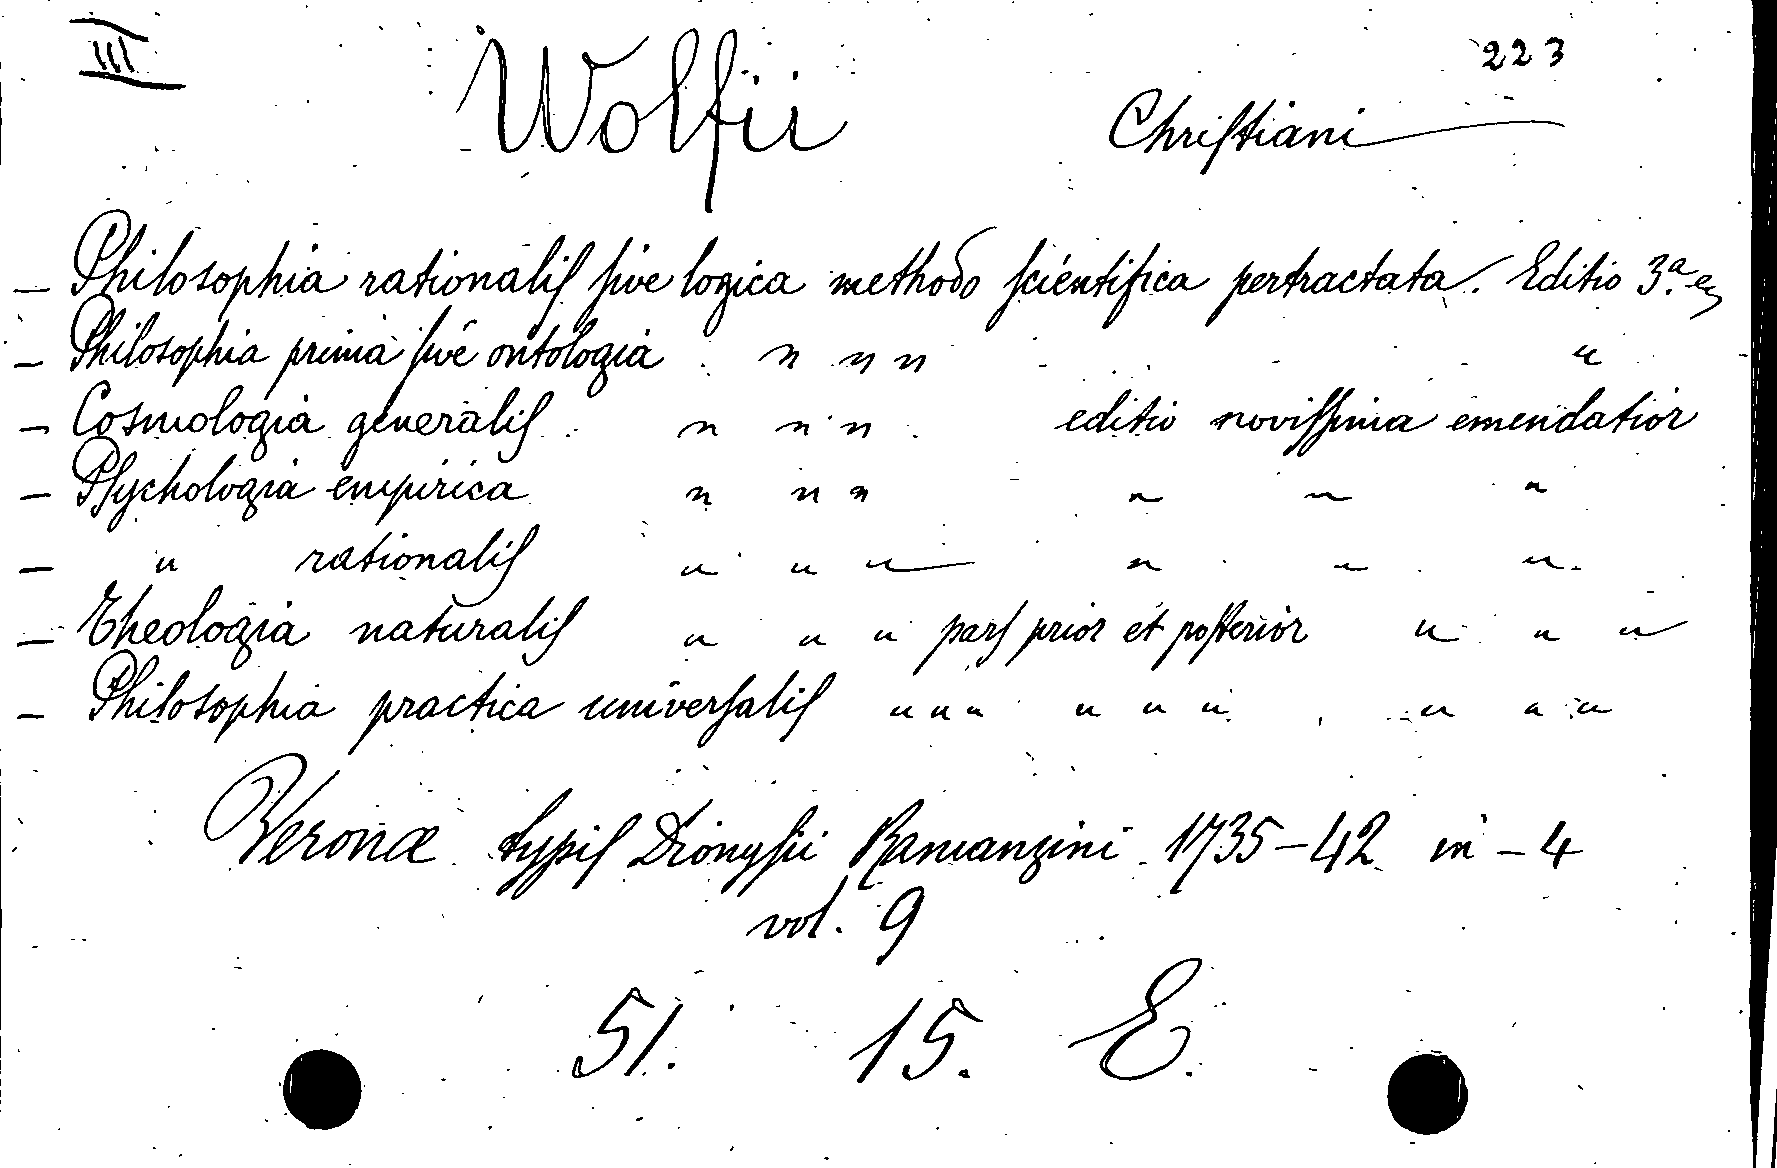 III 223
Wolfii Chriſtiani
— Philosophia rationaliſ ſive logica methodo ſcientifica pertractata. Editio 3.ª
— Philosophia prima ſive ontologia " " " "
— Cosmologia generaliſ " " " editio noviſſima emendatior
— Pſychologia empirica " " " " " "
— " rationaliſ " " " " " "
— Theologia naturaliſ " " " parſ prior et poſterior " " "
— Philosophia practica univerſaliſ " " " " " " " " "
Veronæ typiſ Dionyſii Ramanzini 1735-42 in-4
vol. 9
51. 15. E.